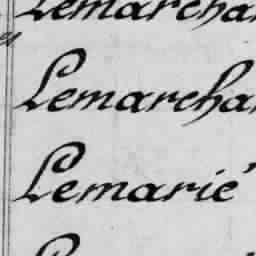 Lemarcha
Lemarcha
Lemarié